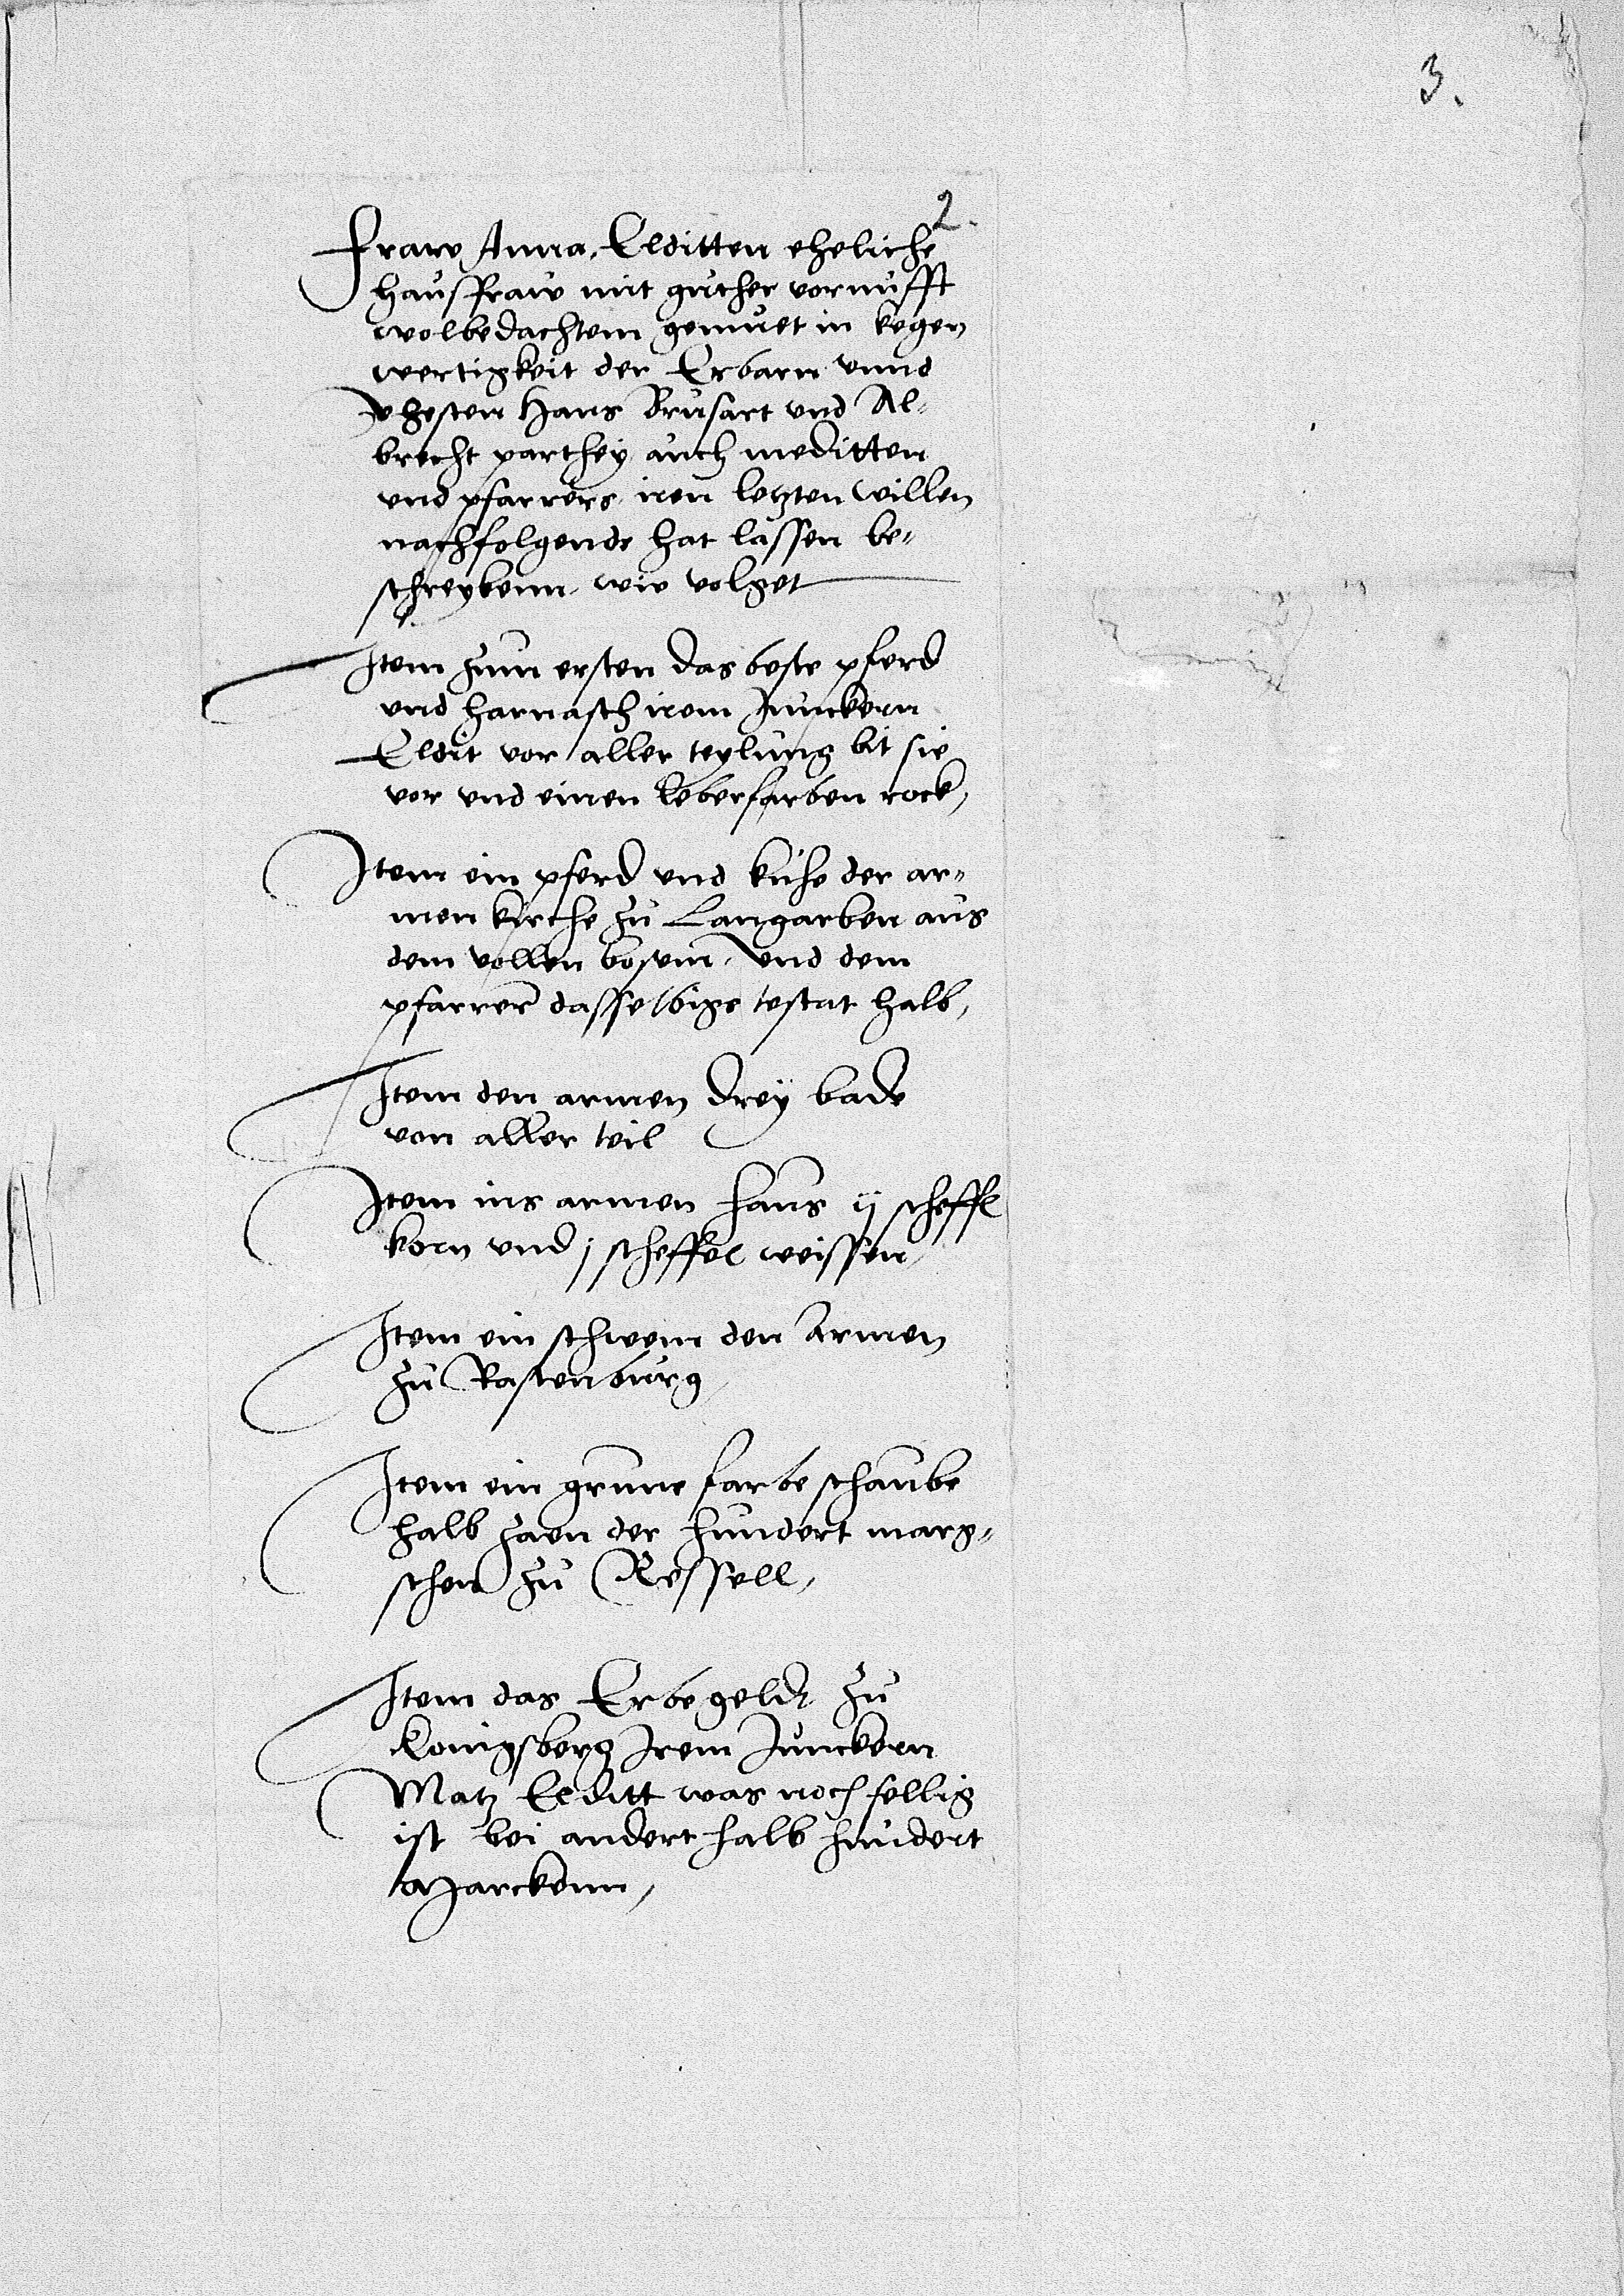 3.
2.
Fraw Anna, Elditten eheliche
hausfraw mit guther vornufft
wolbedachtem gemuet in kegen
wertigkeit der Erbarn vnnd
Vhesten Hans Brusart vnd Al„
brecht parthey auch meditten
vnd pfarrers iren letzten willen
nachfolgende hat lassen be„
schreybenn, wie volget
Item zum ersten das beste pferd
vnd harnasch irem Junckern
Eldit vor aller teylung bit sie
vor vnd einen leberfarben rock,
Item ein pferd vnd kuhe der ar„
men kirche zu Langarben aus
dem vollen bosem, Vnd dem
pfarrer dasselbige testat halb,
Item den armen drey bade
von aller teil
Item ins armen haus ij scheffl
korn vnd j scheffel weissen,
Item ein schwein den Armen
zu Rastenburg,
Item ein grune farbe schaube
halb der hundert marg„
schen zu Ressell,
Item das Erbegeldt zu
Konigsberg Irem Junckern
Matz Elditt was noch fellig
ist bei andert halb hundert
Marckenn,